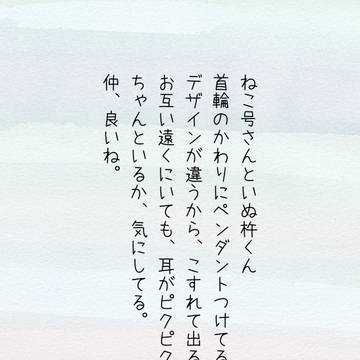 ねこ号さんといぬ杵くん
首輪のかわりにペンダントつけてる
デザインが違うから、こすれて出る
お互い遠くにいても、耳がピクピク
ちゃんといるか、気にしてる。
仲、良いね。